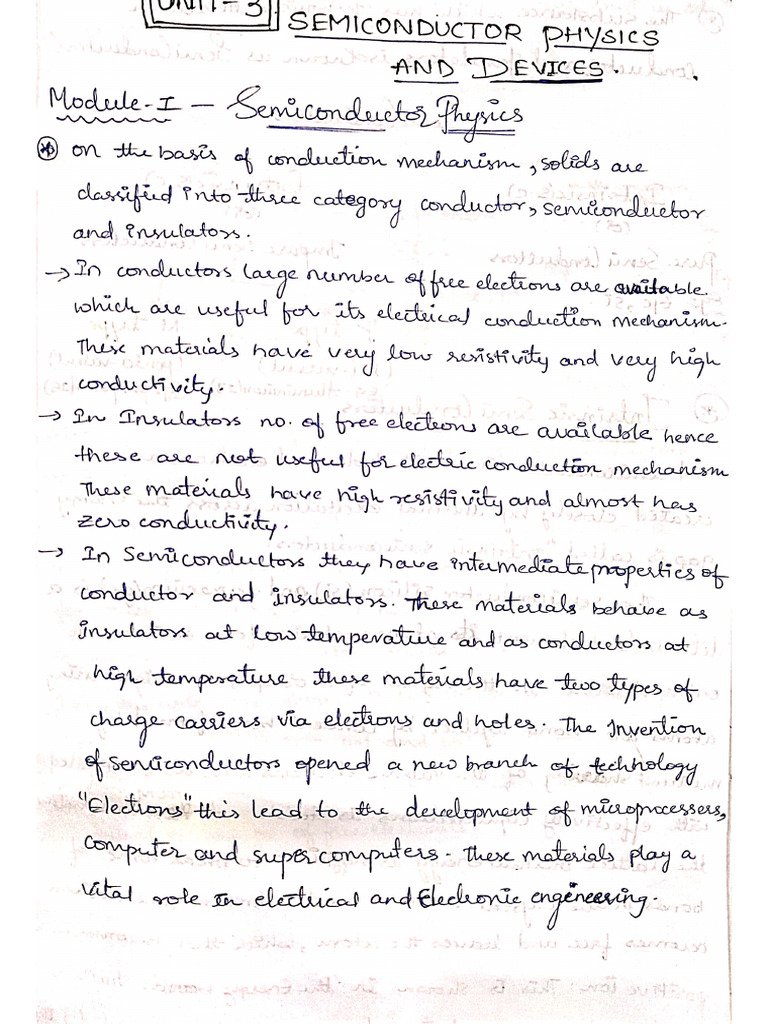 UNIT-3
SEMICONDUCTOR PHYSICS
AND DEVICES.
Module-I — Semiconductor Physics
on the basis of conduction mechanism, solids are
classified into three category conductor, semiconductor
and insulators.
→ In conductors large number of free elections are available
which are useful for its electrical conduction mechanism.
These materials have very low resistivity and very high
conductivity.
→ In Insulators no. of free electrons are available hence
these are not useful for electric conduction mechanism
These materials have high resistivity and almost has
zero conductivity.
→ In Semiconductors they have intermediate properties of
conductor and insulators. These materials behave as
insulators at low temperature and as conductors at
high temperature these materials have two types of
charge carriers via electrons and holes. The Invention
of semiconductors opened a new branch of technology
"Elections" this lead to the development of microprocessers,
computer and supercomputers. These materials play a
vital role in electrical and Electronic engineering.